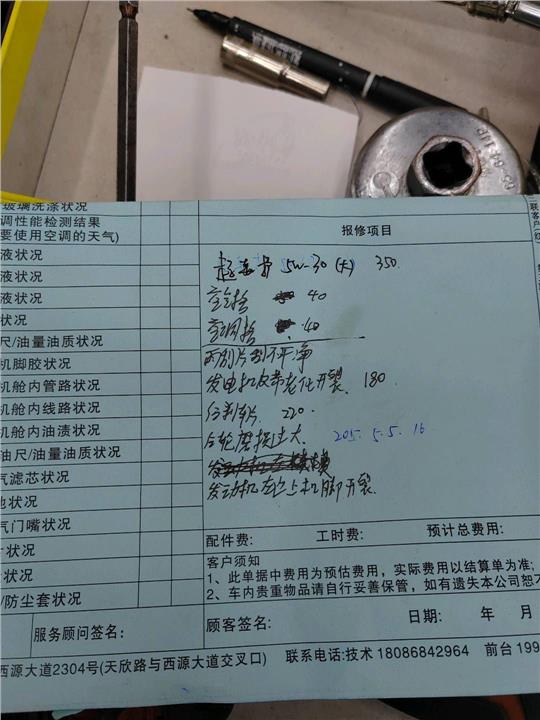 玻璃洗涤状况
调性能检测结果
要使用空调的天气)
报修项目
液状况
液状况
液状况
状况
尺/油量油质状况
机脚胶状况
机舱内管路状况
机舱内线路状况
机舱内油渍状况
油尺/油量油质状况
气滤芯状况
池状况
气门嘴状况
状况
状况
/防尘套状况
5W-30 (大) 350.
空气格 40
空调格 40
雨刮片刮不干净
发电机皮带老化开裂. 180
刹车片. 220.
后轮磨损过大. 205. 5.5. 16
发动机左上机脚开裂.
配件费: 工时费: 预计总费用:
客户须知
1、此单据中费用为预估费用，实际费用以结算单为准；
2、车内贵重物品请自行妥善保管，如有遗失本公司恕不
服务顾问签名:
顾客签名: 日期: 年 月
西源大道2304号(天欣路与西源大道交叉口) 联系电话:技术 18086842964 前台 199